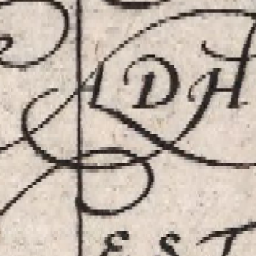 ADH
EST